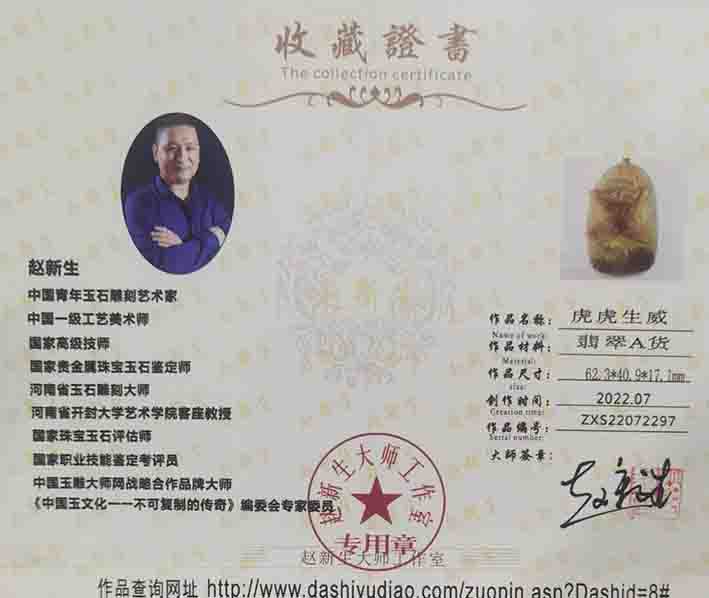 收藏證書
The collection certificate
赵新生
中国青年玉石雕刻艺术家
中国一级工艺美术师
国家高级技师
国家贵金属珠宝玉石鉴定师
河南省玉石雕刻大师
河南省开封大学艺术学院客座教授
国家珠宝玉石评估师
国家职业技能鉴定考评员
中国玉雕大师网战略合作品牌大师
《中国玉文化一一不可复制的传奇》编委会专家委员
作品名称: 虎虎生威
Name of work:
作品材料: 翡翠A货
Material:
作品尺寸: 62.3*40.9*17.1mm
size:
创作时间: 2022.07
Creation time:
作品编号: ZXS22072297
Serial number:
大师签章:
赵新生
赵新生大师工作室
专用章
赵新生大师工作室
作品查询网址 http://www.dashiyudiao.com/zuopin.asp?Dashid=8#